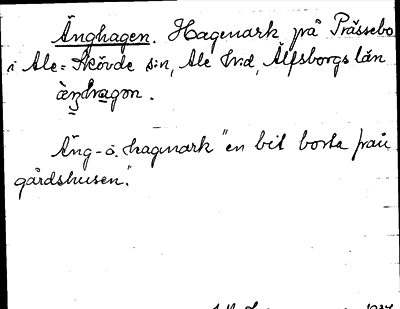 Änghagen. Hagmark på Prässebo
i Ale-Skövde s:n, Ale hrd, Älfsborgs län
Äng- o. hagmark "en bit borta från
gårdshusen".